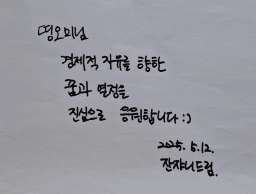 명오미님
경제적 자유를 향한
꿈과 열정을
진심으로 응원합니다 :)
2025. 5. 12.
잔쟈니드림.